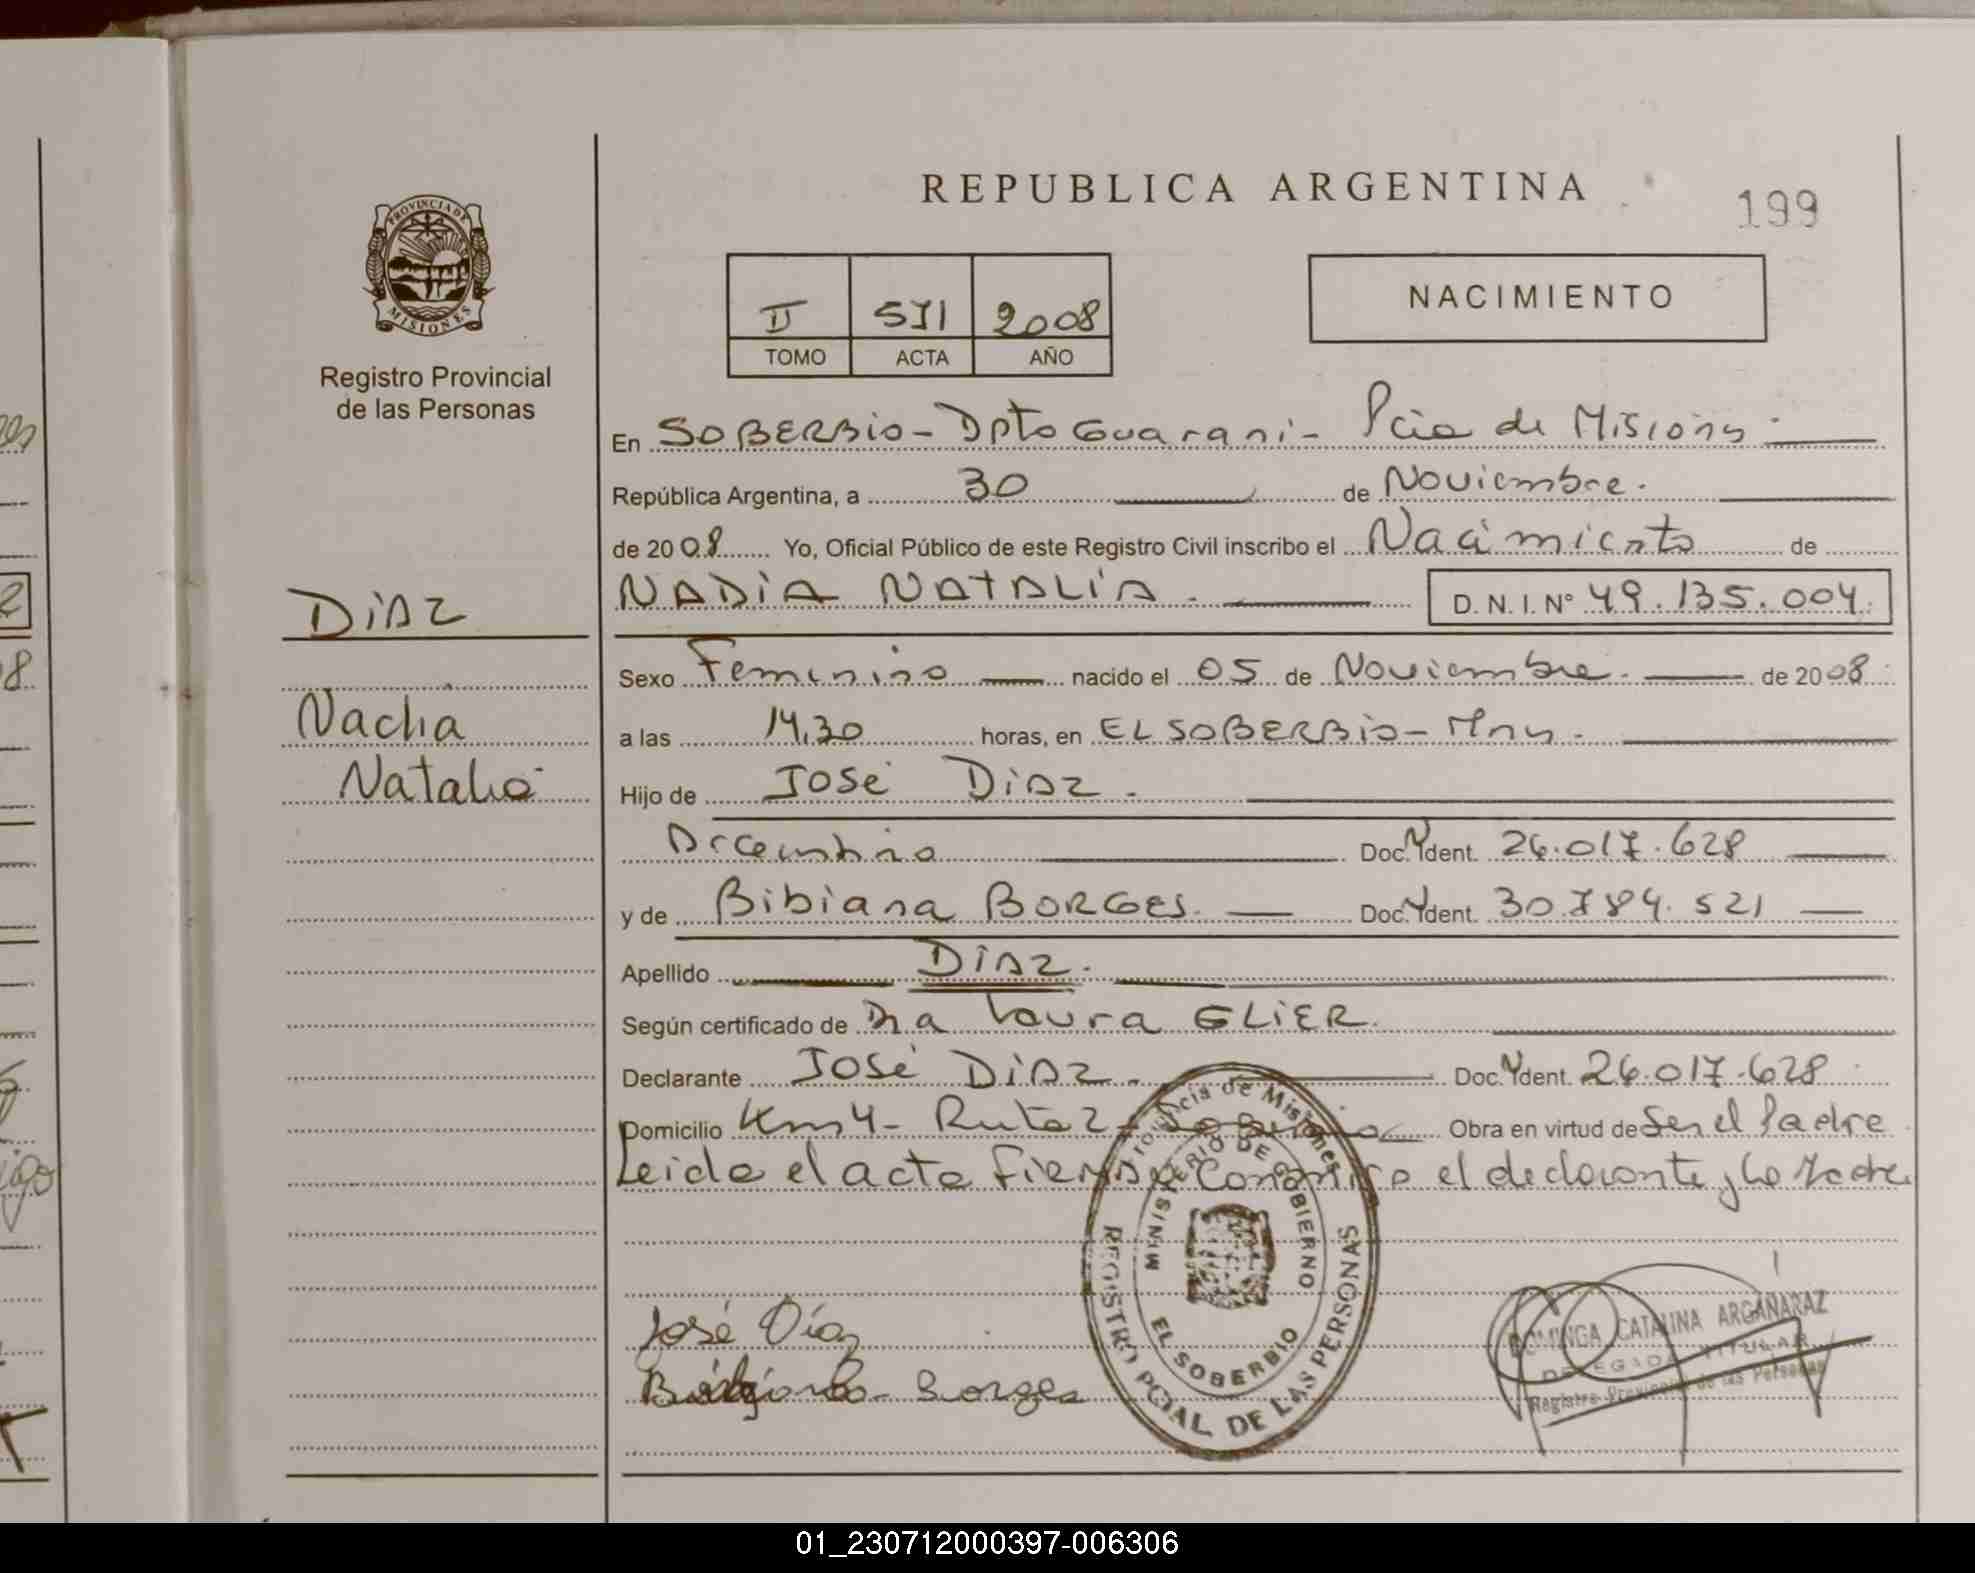 REPUBLICA ARGENTINA
199
PROVINCIA DE
MISIONES
Registro Provincial
de las Personas
II 571 2008
TOMO ACTA AÑO
NACIMIENTO
En SOBERBIO - Dpto Guarani - Pcia de Misiones
República Argentina, a 30 de Noviembre.
de 2008 Yo, Oficial Público de este Registro Civil inscribo el Nacimiento de
DIAZ
NADIA NATALIA. D. N. I. N° 49.135.004.
Sexo Femenino nacido el 05 de Noviembre. de 2008
Nadia
a las 14,30 horas, en EL SOBERBIO - Mnes.
Natalia
Hijo de José DIAZ.
Argentino Doc. Ydent. 26.017.628
y de Bibiana BORGES. Doc. Ydent. 30.784.521
Apellido DIAZ.
Según certificado de Dra Laura GLIER.
Declarante José DIAZ. Doc. Ydent. 26.017.628
Domicilio Km 4 - Ruta 2 - Soberbio Obra en virtud de Ser el Padre
Leida el acta firman Conmigo el declarante y la Madre
Provincia de Misiones
MINISTERIO DE GOBIERNO
EL SOBERBIO
REGISTRO PCIAL. DE LAS PERSONAS
José Díaz
Borges
DOMINGA CATALINA ARGAÑARAZ
DELEGADA TITULAR
Registro Provincial de las Personas
01_230712000397-006306